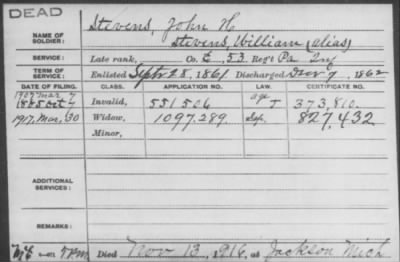 DEAD
NAME OF SOLDIER: Stevens, John H
Stevens, William (alias)
SERVICE: Late rank, Co. E, 53 Reg't Pa Inf
TERM OF SERVICE: Enlisted Sept 28, 1861 Discharged Nov 7, 1862
DATE OF FILING. CLASS. APPLICATION NO. LAW. CERTIFICATE NO.
1907 Mar 7 age
1885 Oct Invalid, 551506 J 373,810.
1917, Mar, 30 Widow, 1097.289. Sep. 827,432
Minor,
ADDITIONAL SERVICES:
REMARKS:
Died Nov 13, 1916, at Jackson Mich